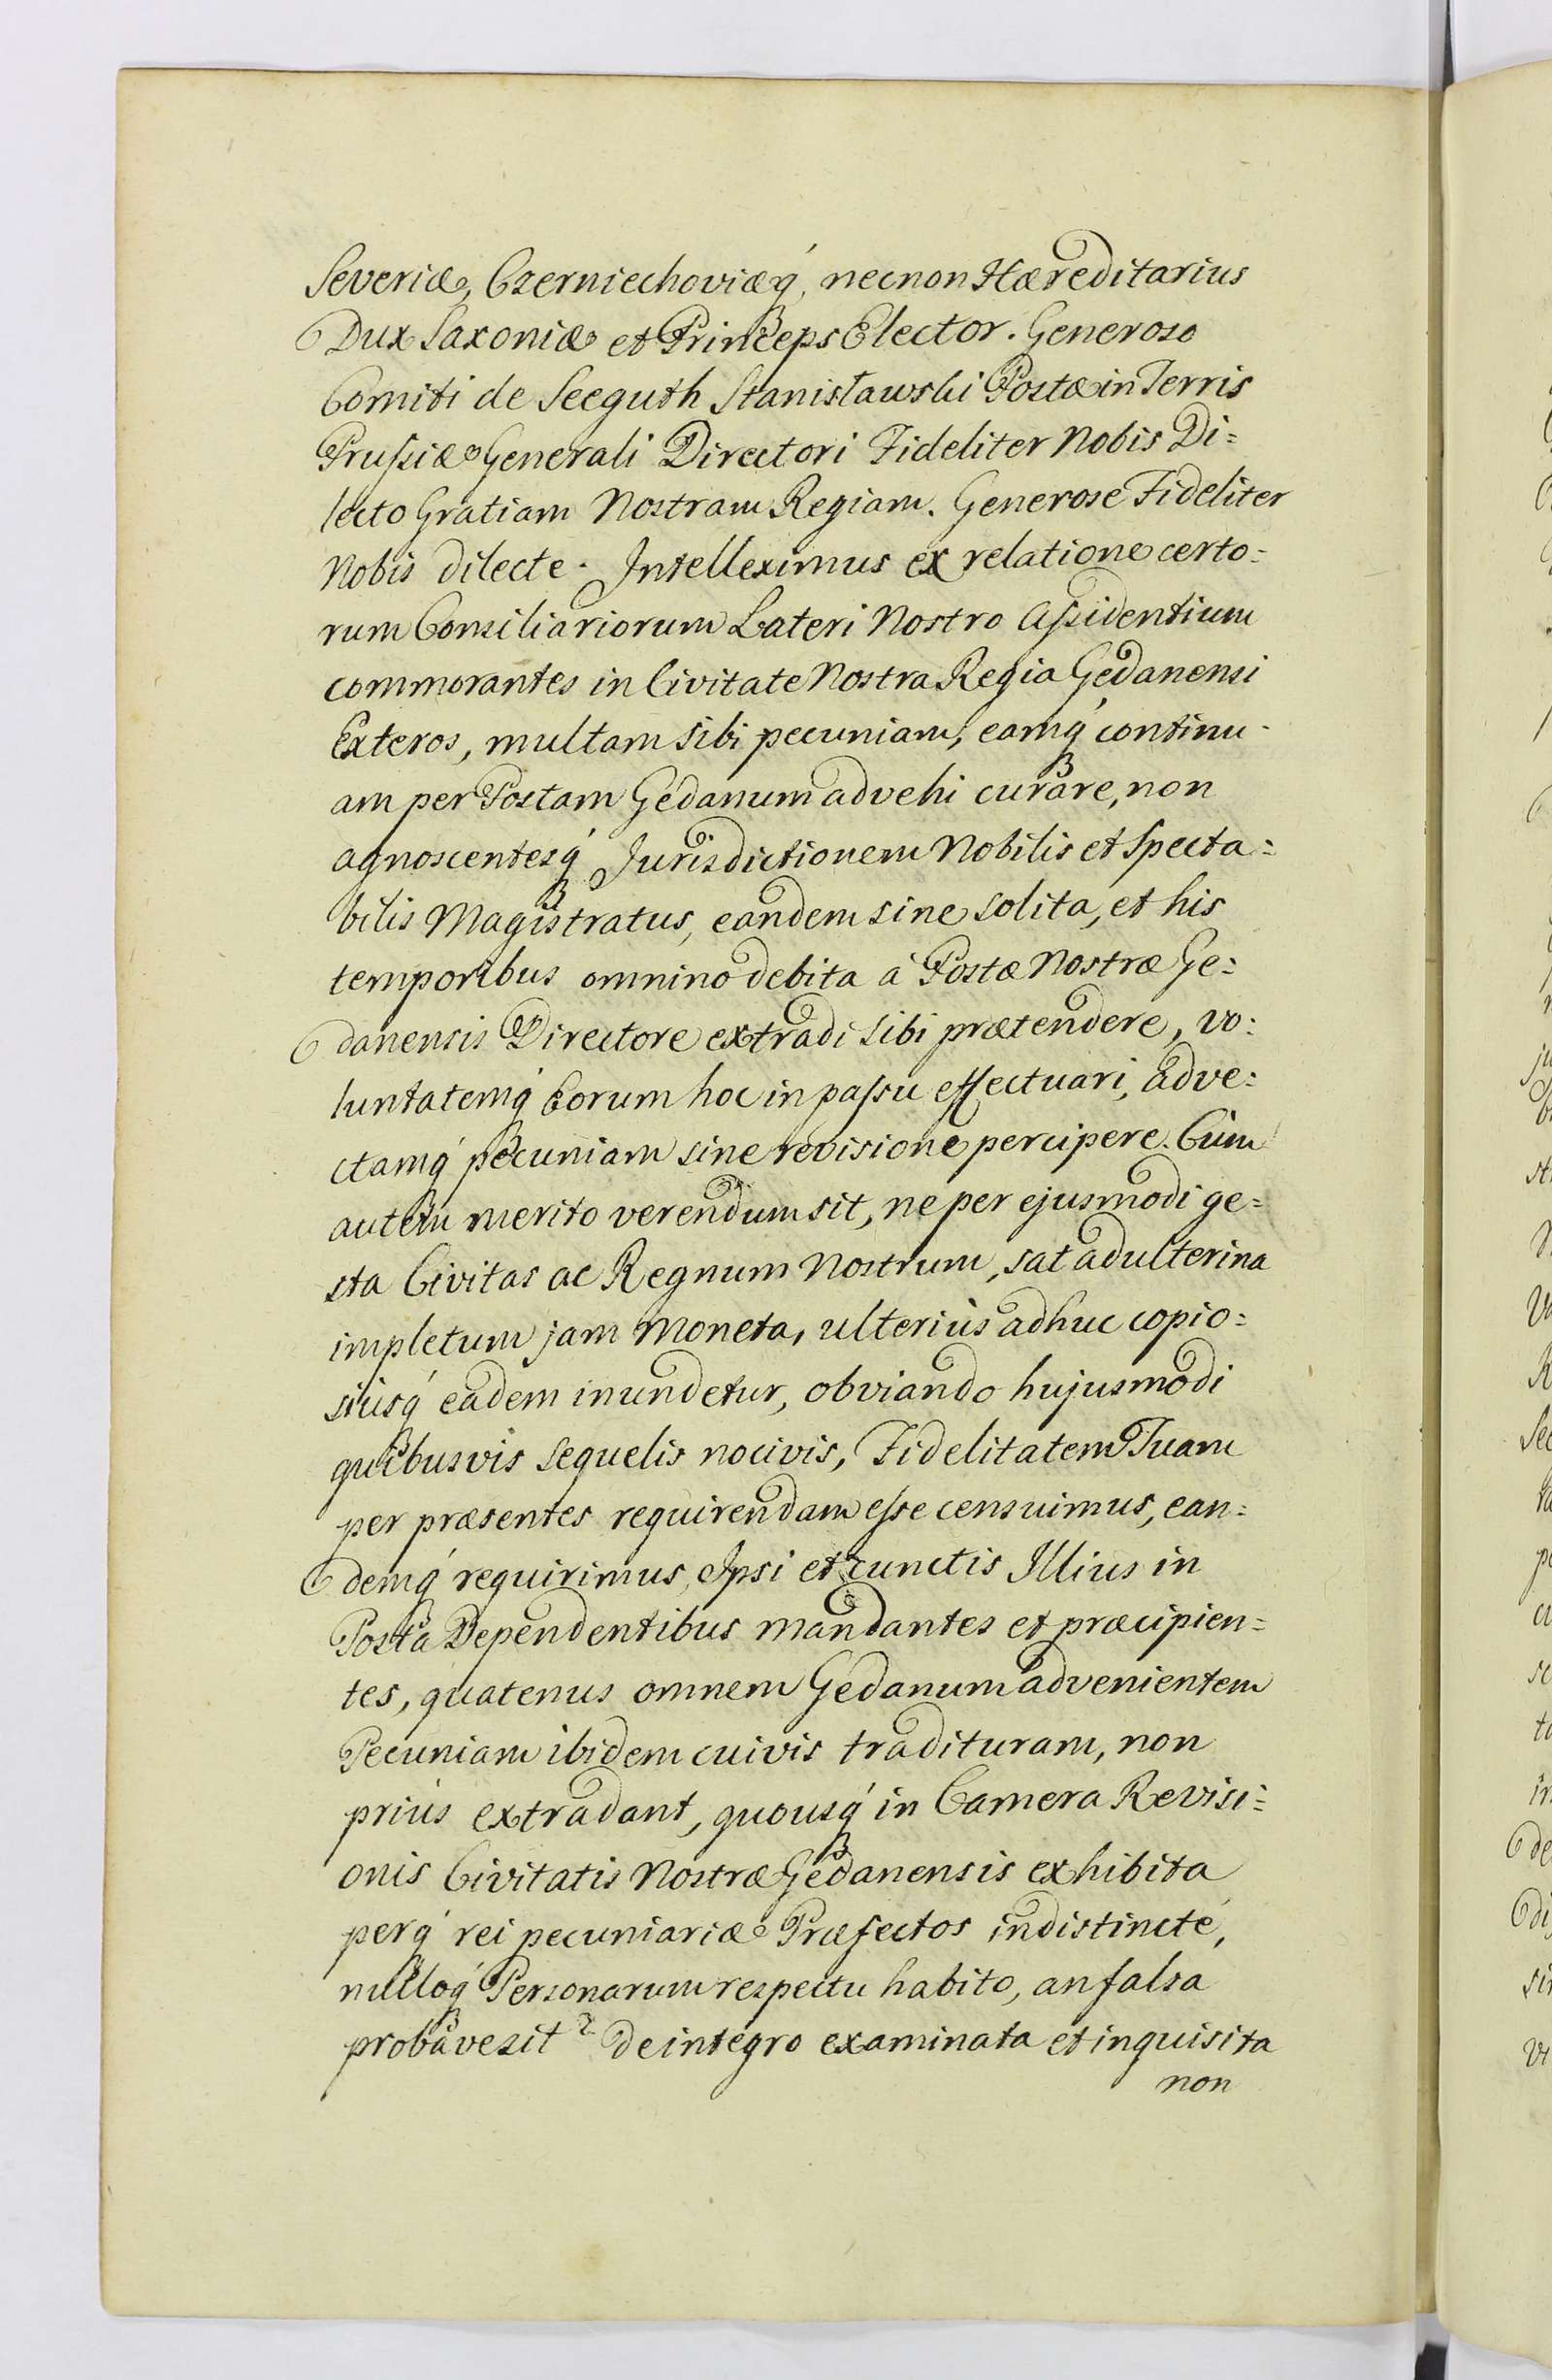 Severiæ, Czerniechoviæq́, necnon Hæreditarius
Dux Saxoniæ et Princeps Elector. Generoso
Comiti de Seeguth Stanisławski Postæ in Terris
Prussiæ Generali Directori Fideliter Nobis Di=
lecto Gratiam Nostram Regiam. Generose Fideliter
Nobis dilecte. Intelleximus ex relatione certo=
rum Consiliariorum Lateri Nostro Assidentium
commorantes in Civitate Nostra Regia Gedanensi
Exteros, multam sibi pecuniam, eamq́ continu=
am per Postam Gedanum advehi curare, non
agnoscentesq́ Jurisdictionem Nobilis et Specta=
bilis Magistratus, eandem sine solita, et his
temporibus omnino debita à Postæ Nostræ Ge=
danensis Directore extradi sibi prætendere, vo=
luntatemq́ Eorum hoc in passu effectuari, adve=
ctamq́ pecuniam sine revisione percipere. Cùm
autem merito verendum sit, ne per ejusmodi ge=
sta Civitas ac Regnum Nostrum, sat adulterina
impletum jam Moneta, ulteriùs adhuc copio=
siùsq́ eadem inundetur, obviando hujusmodi
quibusvis sequelis nocivis, Fidelitatem Tuam
per præsentes requirendam esse censuimus, ean=
demq́ requirimus, Ipsi et cunctis Illius in
Posta Dependentibus mandantes et præcipien=
tes, quatenus omnem Gedanum advenientem
Pecuniam ibidem cuivis tradituram, non
priùs extradant, quousq́ in Camera Revisi=
onis Civitatis Nostræ Gedanensis exhibita
perq́ rei pecuniariæ Præfectos indistinctè,
nulloq́ Personarum respectu habito, an falsa
probave sit? de integro examinata et inquisita
non